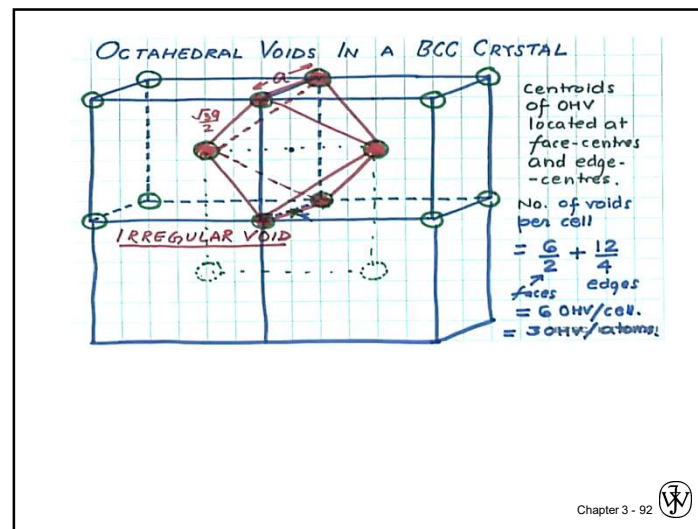 OCTAHEDRAL VOIDS IN A BCC CRYSTAL
a
√3a
2
Centroids
of OHV
located at
face-centres
and edge-
-centres.
No. of voids
per cell
= 6/2 + 12/4
faces edges
= 6 OHV/cell.
= 3 OHV/atoms.
IRREGULAR VOID
Chapter 3 - 92